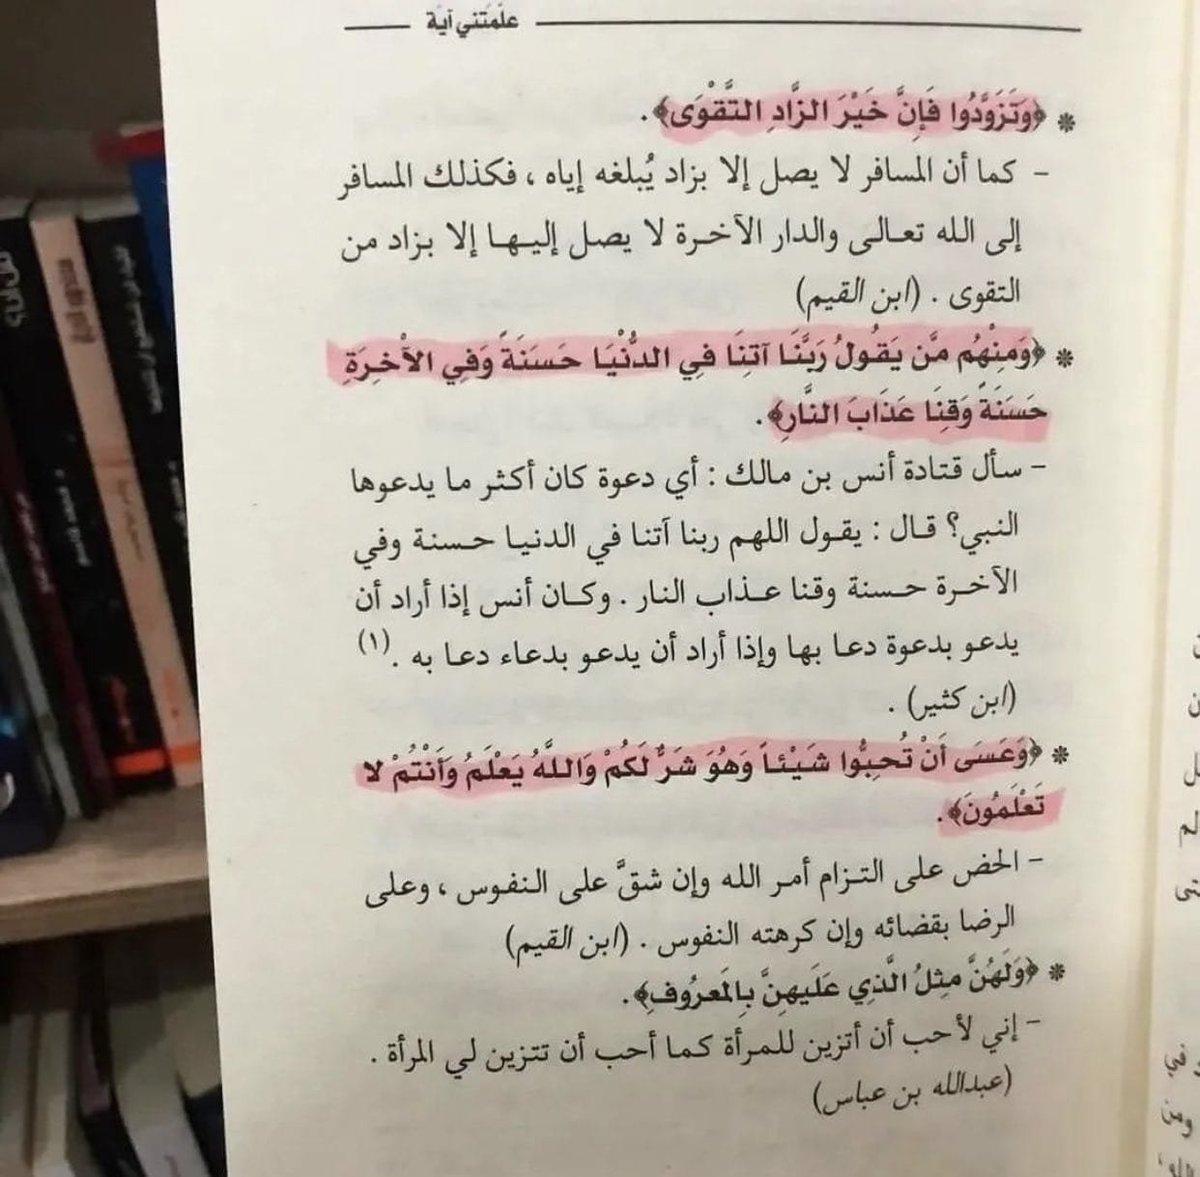 علمتني آية
* ﴿وَتَزَوَّدُوا فَإِنَّ خَيْرَ الزَّادِ التَّقْوَى﴾.
- كما أن المسافر لا يصل إلا بزاد يُبلغه إياه ، فكذلك المسافر
إلى الله تعالى والدار الآخرة لا يصل إليها إلا بزاد من
التقوى . (ابن القيم)
* ﴿وَمِنْهُم مَّن يَقُولُ رَبَّنَا آتِنَا فِي الدُّنْيَا حَسَنَةً وَفِي الآخِرَةِ
حَسَنَةً وَقِنَا عَذَابَ النَّارِ﴾.
- سأل قتادة أنس بن مالك : أي دعوة كان أكثر ما يدعوها
النبي؟ قال : يقول اللهم ربنا آتنا في الدنيا حسنة وفي
الآخرة حسنة وقنا عذاب النار . وكان أنس إذا أراد أن
يدعو بدعوة دعا بها وإذا أراد أن يدعو بدعاء دعا به .(١)
(ابن كثير) .
* ﴿وَعَسَى أَنْ تُحِبُّوا شَيْئاً وَهُوَ شَرٌّ لَكُمْ وَاللَّهُ يَعْلَمُ وَأَنْتُمْ لا
تَعْلَمُونَ﴾.
- الحض على التزام أمر الله وإن شقَّ على النفوس ، وعلى
الرضا بقضائه وإن كرهته النفوس . (ابن القيم)
* ﴿وَلَهُنَّ مِثلُ الَّذِي عَلَيهِنَّ بِالمَعرُوفِ﴾.
- إني لأحب أن أتزين للمرأة كما أحب أن تتزين لي المرأة .
(عبدالله بن عباس)